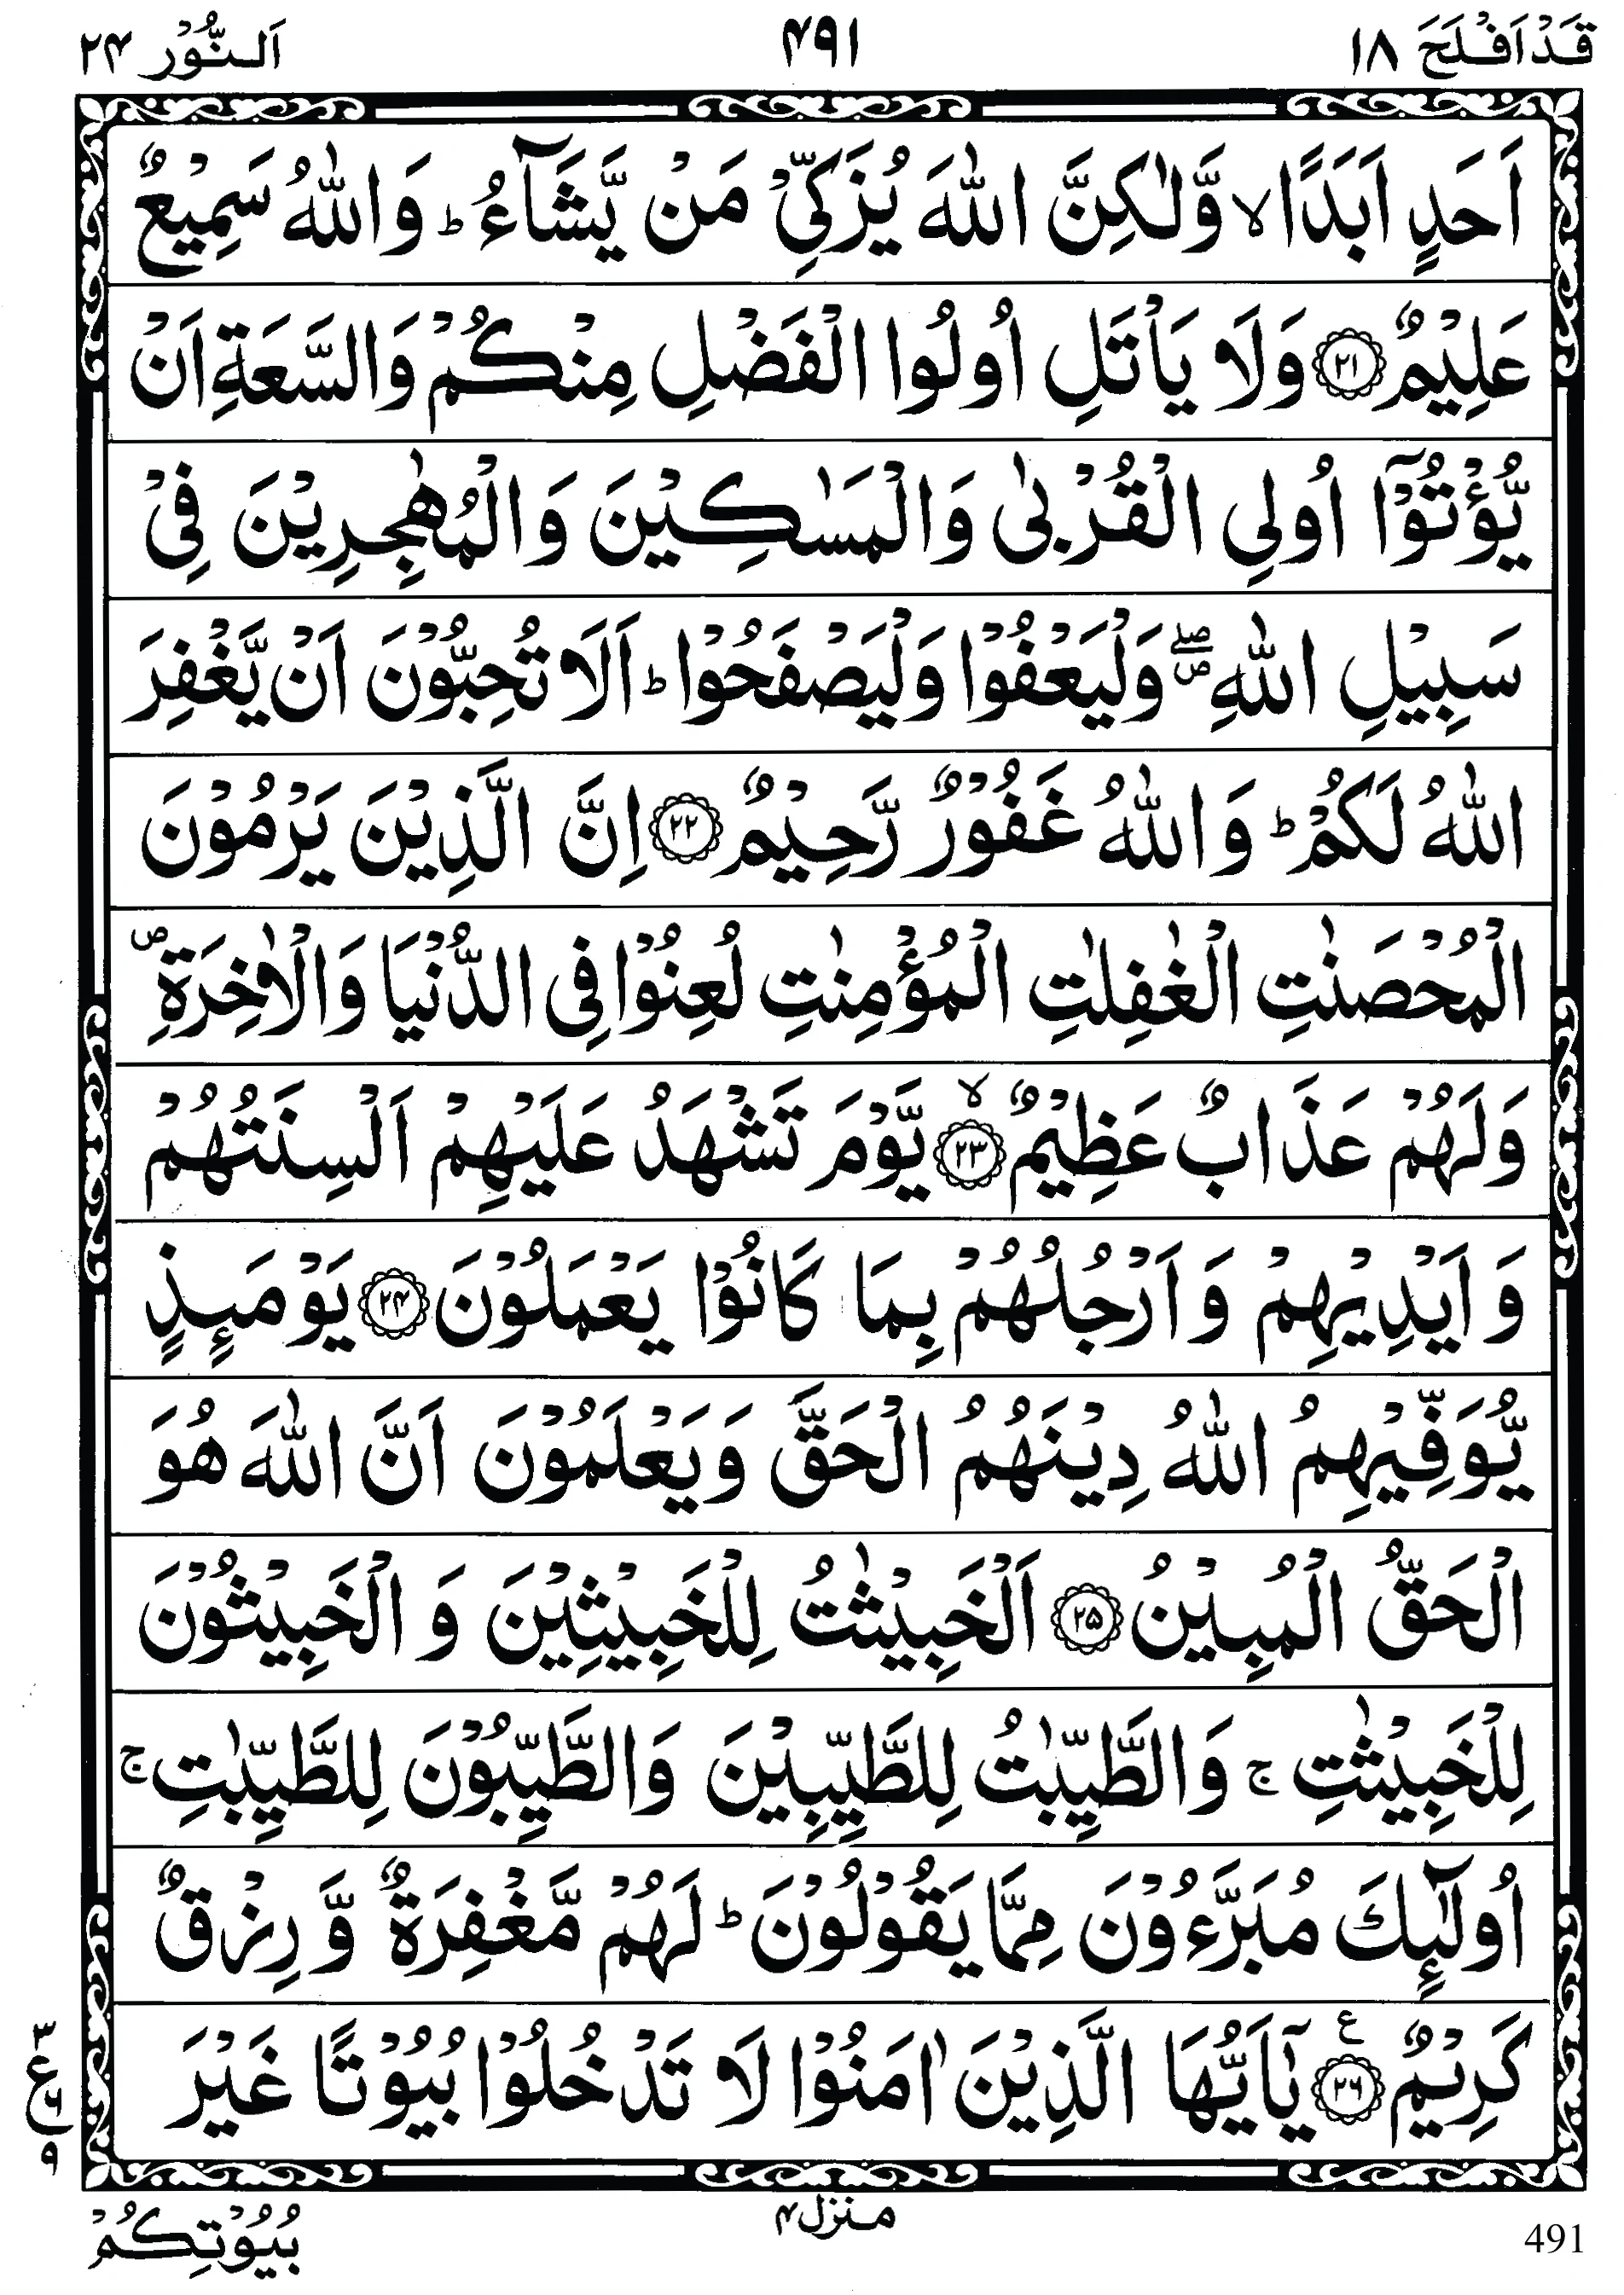 قَدْ اَفْلَحَ ۱۸ ۴۹۱ اَلنُّوْر ۲۴
اَحَدٍ اَبَدًا ۙ وَّلٰكِنَّ اللّٰهَ يُزَكِّىْ مَنْ يَّشَآءُ ؕ وَاللّٰهُ سَمِيْعٌ
عَلِيْمٌ ﴿۲۱﴾ وَلَا يَاْتَلِ اُولُوا الْفَضْلِ مِنْكُمْ وَالسَّعَةِ اَنْ
يُّؤْتُوْۤا اُولِى الْقُرْبٰى وَالْمَسٰكِيْنَ وَالْمُهٰجِرِيْنَ فِىْ
سَبِيْلِ اللّٰهِ ۖ وَلْيَعْفُوْا وَلْيَصْفَحُوْا ؕ اَلَا تُحِبُّوْنَ اَنْ يَّغْفِرَ
اللّٰهُ لَكُمْ ؕ وَاللّٰهُ غَفُوْرٌ رَّحِيْمٌ ﴿۲۲﴾ اِنَّ الَّذِيْنَ يَرْمُوْنَ
الْمُحْصَنٰتِ الْغٰفِلٰتِ الْمُؤْمِنٰتِ لُعِنُوْا فِى الدُّنْيَا وَالْاٰخِرَةِ ص
وَلَهُمْ عَذَابٌ عَظِيْمٌ ۙ﴿۲۳﴾ يَّوْمَ تَشْهَدُ عَلَيْهِمْ اَلْسِنَتُهُمْ
وَاَيْدِيْهِمْ وَاَرْجُلُهُمْ بِمَا كَانُوْا يَعْمَلُوْنَ ﴿۲۴﴾ يَوْمَئِذٍ
يُّوَفِّيْهِمُ اللّٰهُ دِيْنَهُمُ الْحَقَّ وَيَعْلَمُوْنَ اَنَّ اللّٰهَ هُوَ
الْحَقُّ الْمُبِيْنُ ﴿۲۵﴾ اَلْخَبِيْثٰتُ لِلْخَبِيْثِيْنَ وَالْخَبِيْثُوْنَ
لِلْخَبِيْثٰتِ ۚ وَالطَّيِّبٰتُ لِلطَّيِّبِيْنَ وَالطَّيِّبُوْنَ لِلطَّيِّبٰتِ ۚ
اُولٰٓئِكَ مُبَرَّءُوْنَ مِمَّا يَقُوْلُوْنَ ؕ لَهُمْ مَّغْفِرَةٌ وَّرِزْقٌ
كَرِيْمٌ ﴿۲۶﴾ ع يٰۤاَيُّهَا الَّذِيْنَ اٰمَنُوْا لَا تَدْخُلُوْا بُيُوْتًا غَيْرَ
۳
ع ۶
۹
بُيُوْتِكُمْ
منزل ۴
491